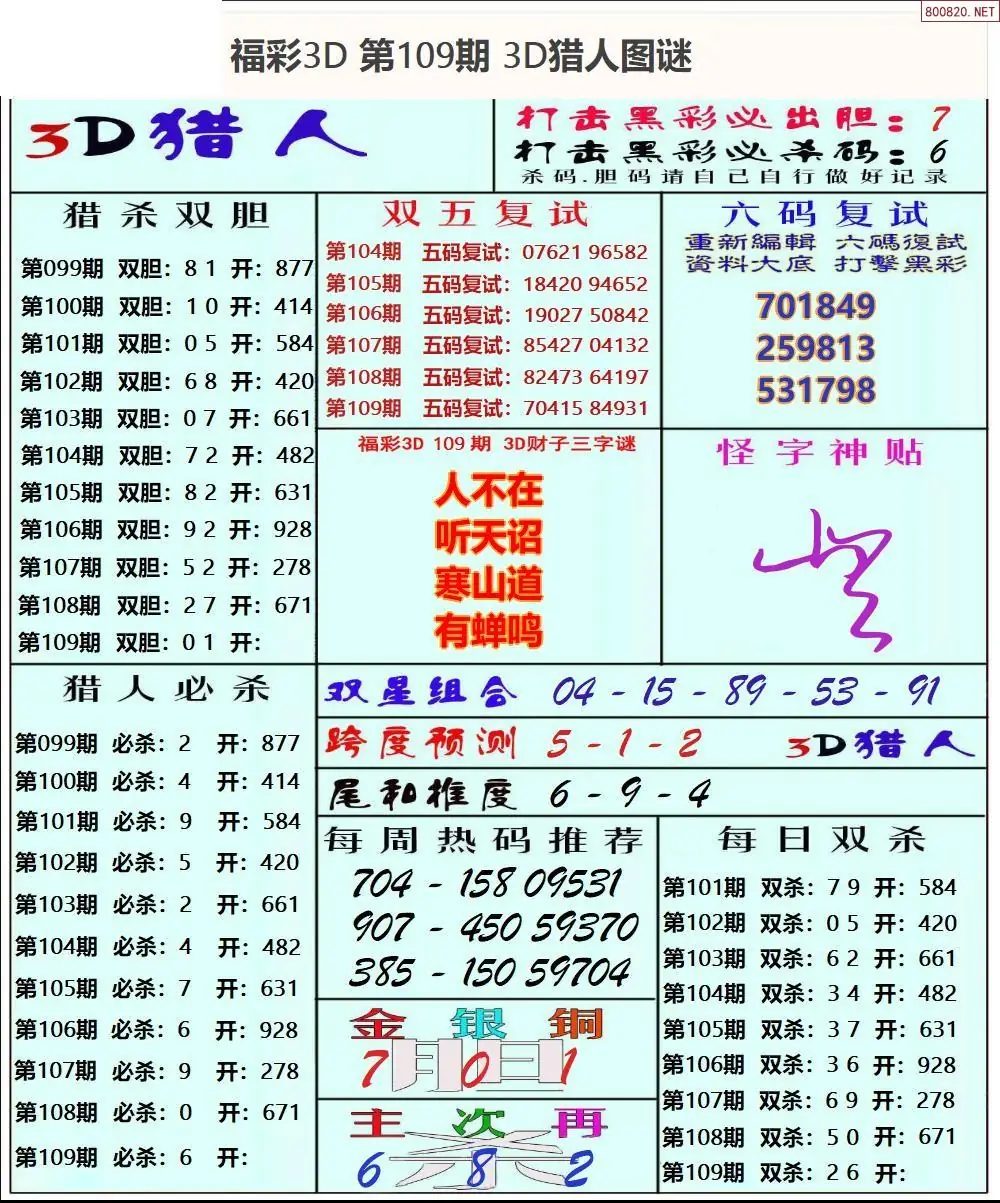 800820.NET
福彩3D 第109期 3D猎人图谜
3D猎人
打击黑彩必出胆：7
打击黑彩必杀码：6
杀码.胆码请自己自行做好记录
猎杀双胆
第099期 双胆：8 1 开：877
第100期 双胆：1 0 开：414
第101期 双胆：0 5 开：584
第102期 双胆：6 8 开：420
第103期 双胆：0 7 开：661
第104期 双胆：7 2 开：482
第105期 双胆：8 2 开：631
第106期 双胆：9 2 开：928
第107期 双胆：5 2 开：278
第108期 双胆：2 7 开：671
第109期 双胆：0 1 开：
双五复试
第104期 五码复试：07621 96582
第105期 五码复试：18420 94652
第106期 五码复试：19027 50842
第107期 五码复试：85427 04132
第108期 五码复试：82473 64197
第109期 五码复试：70415 84931
六码复试
重新編輯 六碼復試
資料大底 打擊黑彩
701849
259813
531798
福彩3D 109 期 3D财子三字谜
人不在
听天诏
寒山道
有蝉鸣
怪字神贴
猎人必杀
第099期 必杀：2 开：877
第100期 必杀：4 开：414
第101期 必杀：9 开：584
第102期 必杀：5 开：420
第103期 必杀：2 开：661
第104期 必杀：4 开：482
第105期 必杀：7 开：631
第106期 必杀：6 开：928
第107期 必杀：9 开：278
第108期 必杀：0 开：671
第109期 必杀：6 开：
双星组合 04 - 15 - 89 - 53 - 91
跨度预测 5 - 1 - 2 3D猎人
尾和推度 6 - 9 - 4
每周热码推荐
704 - 158 09531
907 - 450 59370
385 - 150 59704
金 银 铜
胆码
7 0 1
主 次 再
杀
6 8 2
每日双杀
第101期 双杀：7 9 开：584
第102期 双杀：0 5 开：420
第103期 双杀：6 2 开：661
第104期 双杀：3 4 开：482
第105期 双杀：3 7 开：631
第106期 双杀：3 6 开：928
第107期 双杀：6 9 开：278
第108期 双杀：5 0 开：671
第109期 双杀：2 6 开：